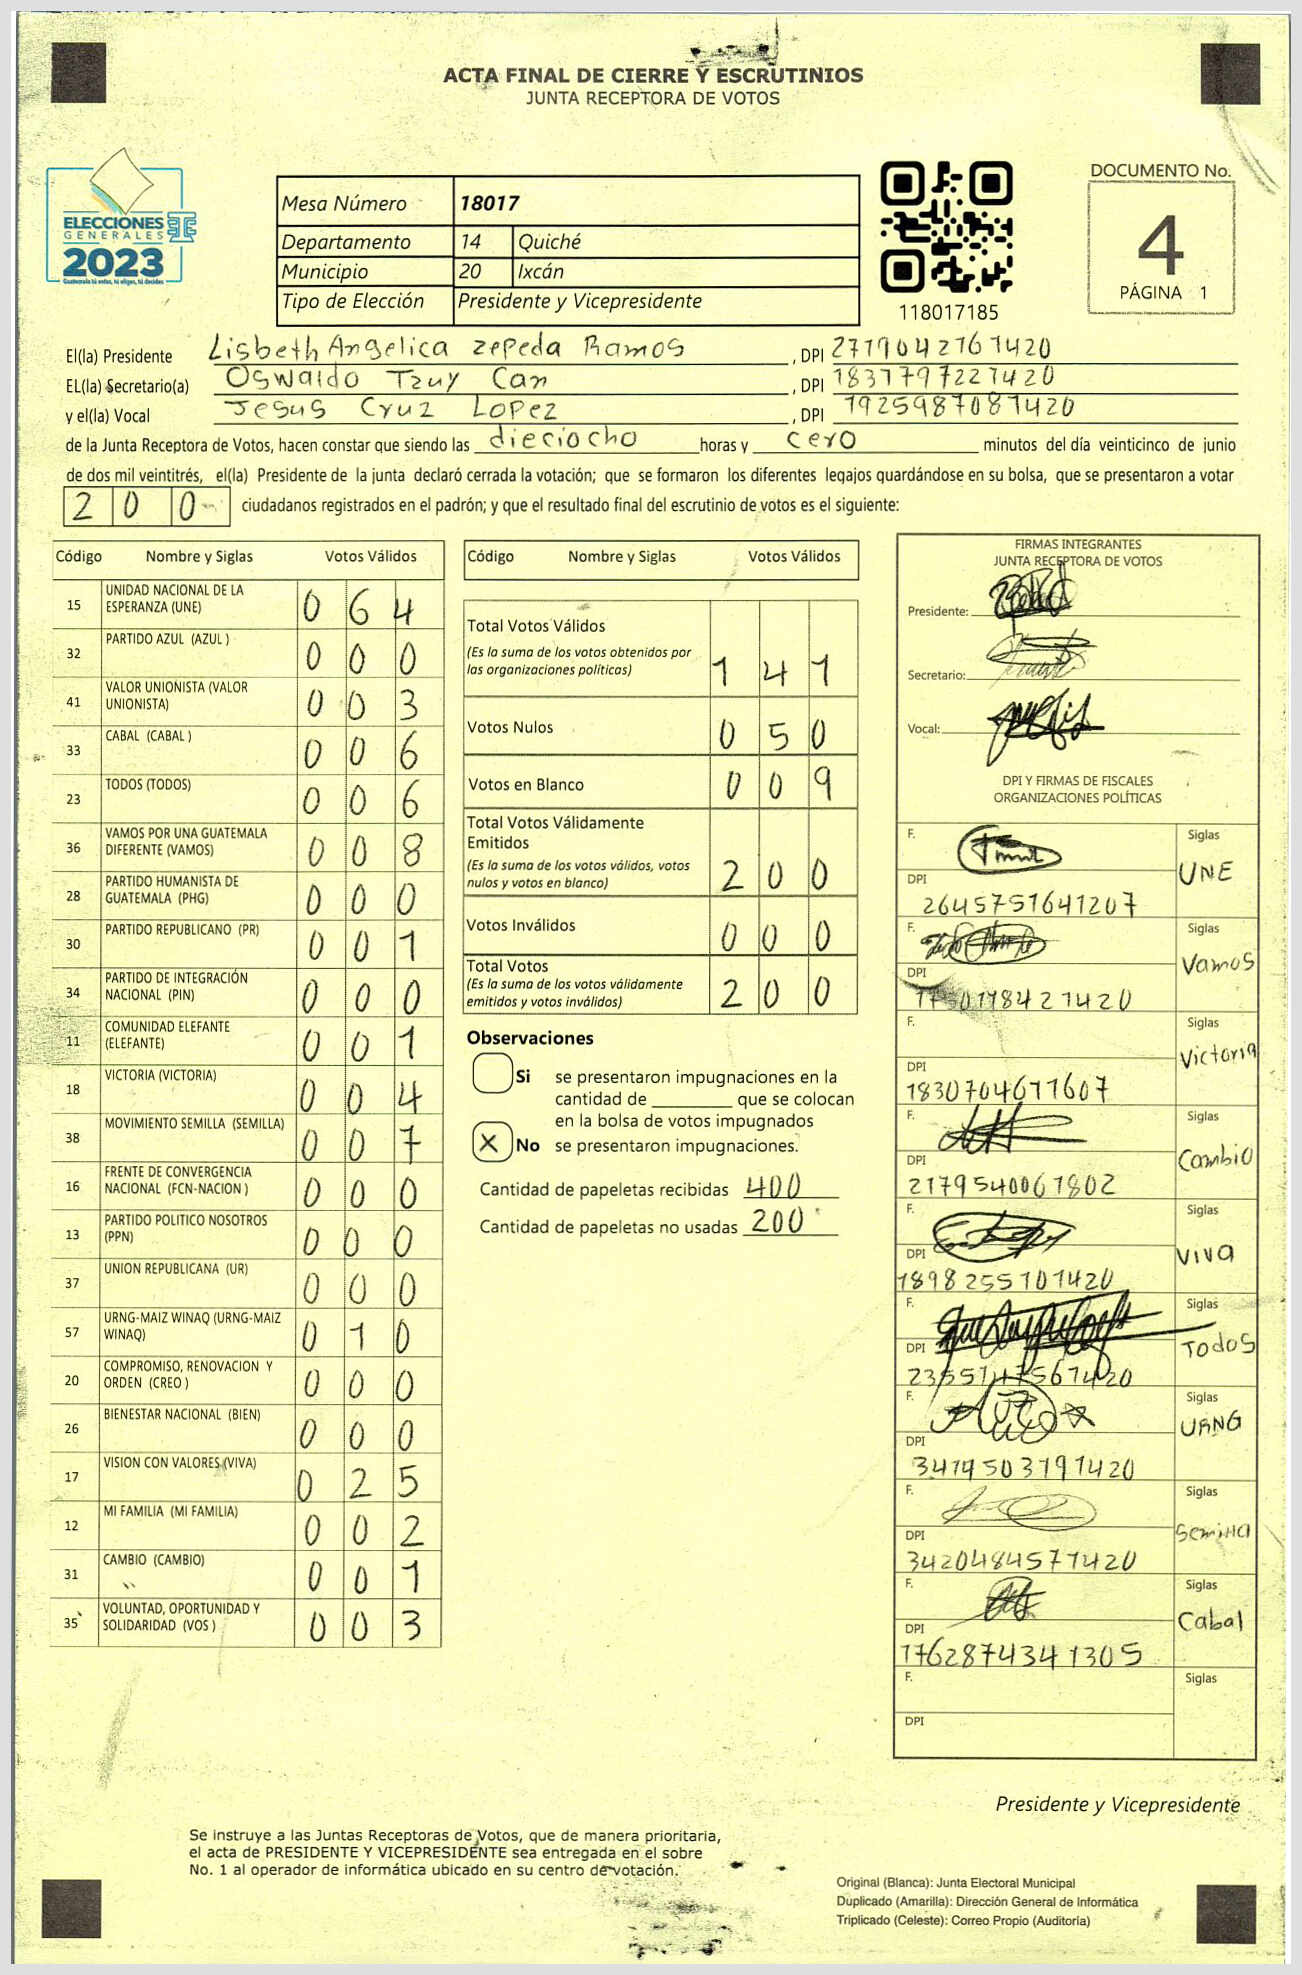 ACTA FINAL DE CIERRE Y ESCRUTINIOS
JUNTA RECEPTORA DE VOTOS
ELECCIONES
GENERALES
2023
Guatemala tú votas, tú eliges, tú decides
Mesa Número 18017
Departamento 14 Quiché
Municipio 20 Ixcán
Tipo de Elección Presidente y Vicepresidente
118017185
DOCUMENTO No.
4
PÁGINA 1
El(la) Presidente Lisbeth Angelica zepeda Ramos , DPI 2719042161420
EL(la) Secretario(a) Oswaldo Tzuy Can , DPI 1837797227420
y el(la) Vocal Jesus Cruz Lopez , DPI 1925987081420
de la Junta Receptora de Votos, hacen constar que siendo las dieciocho horas y cero minutos del día veinticinco de junio
de dos mil veintitrés, el(la) Presidente de la junta declaró cerrada la votación; que se formaron los diferentes legajos guardándose en su bolsa, que se presentaron a votar
200 ciudadanos registrados en el padrón; y que el resultado final del escrutinio de votos es el siguiente:
Código Nombre y Siglas Votos Válidos
15 UNIDAD NACIONAL DE LA ESPERANZA (UNE) 064
32 PARTIDO AZUL (AZUL ) 000
41 VALOR UNIONISTA (VALOR UNIONISTA) 003
33 CABAL (CABAL ) 006
23 TODOS (TODOS) 006
36 VAMOS POR UNA GUATEMALA DIFERENTE (VAMOS) 008
28 PARTIDO HUMANISTA DE GUATEMALA (PHG) 000
30 PARTIDO REPUBLICANO (PR) 001
34 PARTIDO DE INTEGRACIÓN NACIONAL (PIN) 000
11 COMUNIDAD ELEFANTE (ELEFANTE) 001
18 VICTORIA (VICTORIA) 004
38 MOVIMIENTO SEMILLA (SEMILLA) 007
16 FRENTE DE CONVERGENCIA NACIONAL (FCN-NACION ) 000
13 PARTIDO POLITICO NOSOTROS (PPN) 000
37 UNION REPUBLICANA (UR) 000
57 URNG-MAIZ WINAQ (URNG-MAIZ WINAQ) 010
20 COMPROMISO, RENOVACION Y ORDEN (CREO ) 000
26 BIENESTAR NACIONAL (BIEN) 000
17 VISION CON VALORES (VIVA) 025
12 MI FAMILIA (MI FAMILIA) 002
31 CAMBIO (CAMBIO) 001
35 VOLUNTAD, OPORTUNIDAD Y SOLIDARIDAD (VOS ) 003
Código Nombre y Siglas Votos Válidos
Total Votos Válidos
(Es la suma de los votos obtenidos por
las organizaciones políticas) 141
Votos Nulos 050
Votos en Blanco 009
Total Votos Válidamente
Emitidos
(Es la suma de los votos válidos, votos
nulos y votos en blanco) 200
Votos Inválidos 000
Total Votos
(Es la suma de los votos válidamente
emitidos y votos inválidos) 200
Observaciones
Si se presentaron impugnaciones en la
cantidad de ________ que se colocan
en la bolsa de votos impugnados
X No se presentaron impugnaciones.
Cantidad de papeletas recibidas 400
Cantidad de papeletas no usadas 200
FIRMAS INTEGRANTES
JUNTA RECEPTORA DE VOTOS
Presidente:
Secretario:
Vocal:
DPI Y FIRMAS DE FISCALES
ORGANIZACIONES POLÍTICAS
F. Siglas
UNE
DPI 2645751641207
F. Siglas
Vamos
DPI
F. Siglas
Victoria
DPI 1830704611607
F. Siglas
Cambio
DPI 2179540061802
F. Siglas
VIVA
DPI 1898255101420
F. Siglas
TodoS
DPI
F. Siglas
URNG
DPI 3419503191420
F. Siglas
Semilla
DPI 3420484571420
F. Siglas
Cabal
DPI 1762874341305
F. Siglas
DPI
Presidente y Vicepresidente
Se instruye a las Juntas Receptoras de Votos, que de manera prioritaria,
el acta de PRESIDENTE Y VICEPRESIDENTE sea entregada en el sobre
No. 1 al operador de informática ubicado en su centro de votación.
Original (Blanca): Junta Electoral Municipal
Duplicado (Amarilla): Dirección General de Informática
Triplicado (Celeste): Correo Propio (Auditoría)